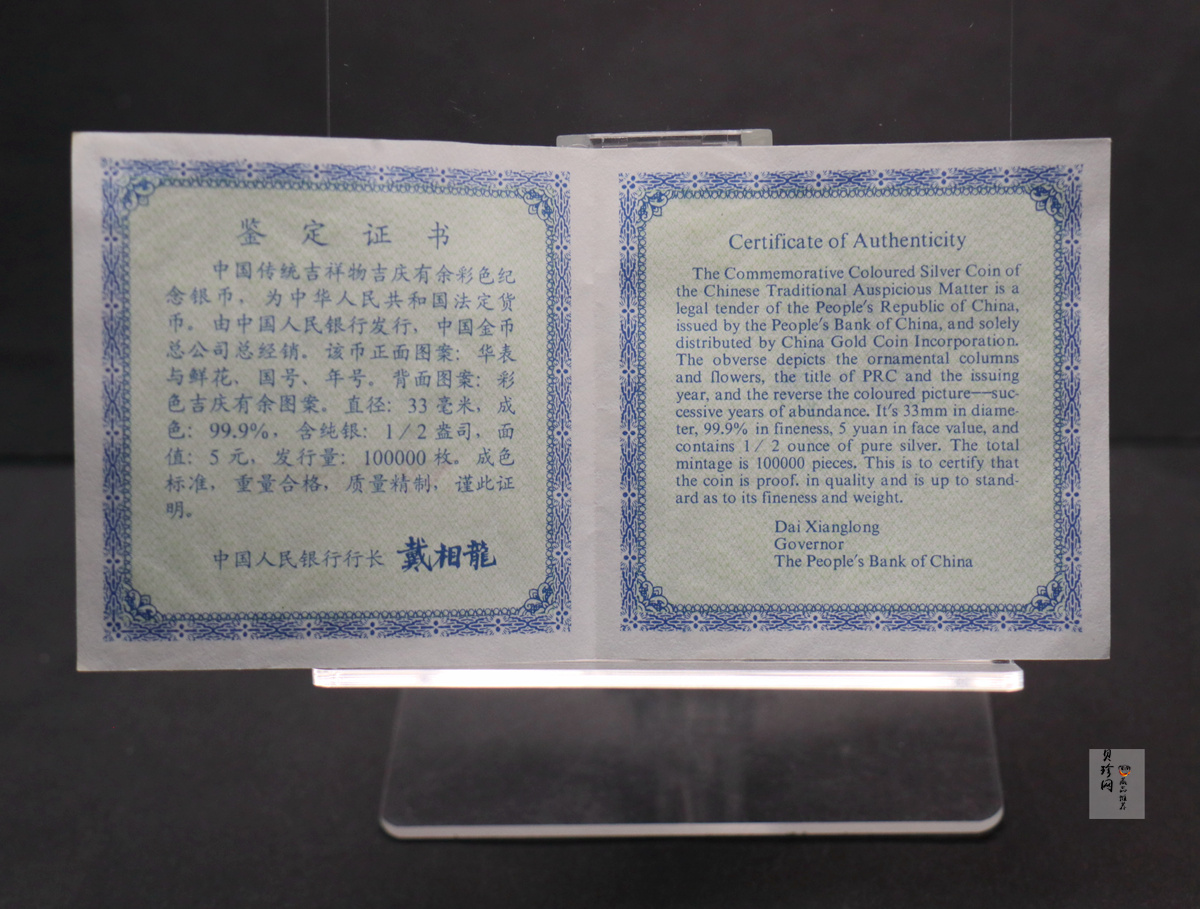 鉴定证书
中国传统吉祥物吉庆有余彩色纪
念银币，为中华人民共和国法定货
币。由中国人民银行发行，中国金币
总公司总经销。该币正面图案：华表
与鲜花、国号、年号。背面图案：彩
色吉庆有余图案。直径：33毫米，成
色：99.9%，含纯银：1/2盎司，面
值：5元，发行量：100000枚。成色
标准，重量合格，质量精制，谨此证
明。
中国人民银行行长 戴相龍
Certificate of Authenticity
The Commemorative Coloured Silver Coin of
the Chinese Traditional Auspicious Matter is a
legal tender of the People's Republic of China,
issued by the People's Bank of China, and solely
distributed by China Gold Coin Incorporation.
The obverse depicts the ornamental columns
and flowers, the title of PRC and the issuing
year, and the reverse the coloured picture—suc-
cessive years of abundance. It's 33mm in diame-
ter, 99.9% in fineness, 5 yuan in face value, and
contains 1/2 ounce of pure silver. The total
mintage is 100000 pieces. This is to certify that
the coin is proof. in quality and is up to stand-
ard as to its fineness and weight.
Dai Xianglong
Governor
The People's Bank of China
贝珍网
藏品推荐